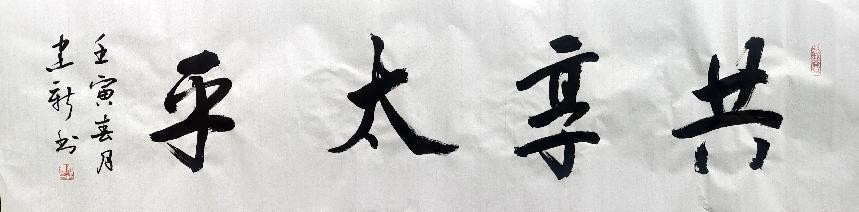 共享太平
壬寅春月
建新书